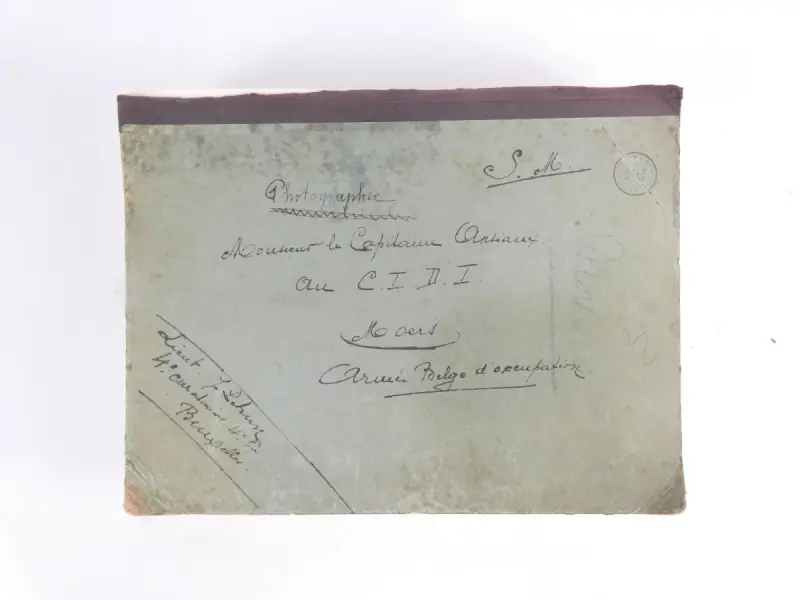 S. M.
Photographie
Monsieur le Capitaine Ansiaux.
au C. I. D. I.
Moers
Armée Belge d'occupation
Lieut.
4e
Bruxelles.